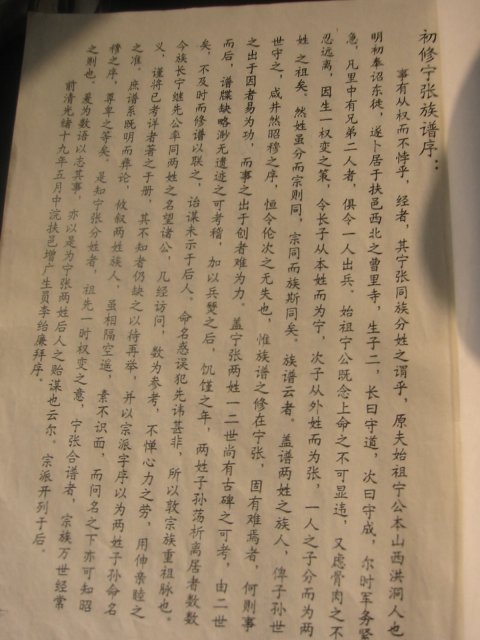 初修宁张族谱序：
事有从权而不悖乎，经者，其宁张同族分姓之谓乎，原夫始祖宁公本山西洪洞人也
明初奉诏东徙，遂卜居于扶邑西北之曹里寺，生子二，长曰守道，次曰守成，尔时军务紧
急，凡里中有兄弟二人者，俱令一人出兵。始祖宁公既念上命之不可显违，又虑骨肉之不
忍远离，因生一权变之策，令长子从本姓而为宁，次子从外姓而为张，一人之子分而为两
姓之祖矣。然姓虽分而宗则同，宗同而族斯同矣。族谱云者。盖谱两姓之族人，俾子孙世
世守之，咸井然昭穆之序，恒令伦次之无失也，惟族谱之修在宁张，固有难焉者，何则事
之出于因者易为功，而事之出于创者难为力。盖宁张两姓一二世尚有古碑之可考，由二世
而后，谱牒缺略渺无遗迹之可考稽，加以兵燹之后，饥馑之年，两姓子孙荡析离居者数数
矣，不及时而修谱以联之，诒谋未示于后人。命名惑误犯先讳甚非，所以敦宗族重祖脉也。
今族长宁继先公率同两姓之名望诸公，几经访问，数为参考，不惮心力之劳，用伸亲睦之
义，谨将已考详者著之于册，其不知者仍缺之以待再举，并以宗派字序以为两姓子孙命名
之准，庶谱系既明而彝伦，攸叙两姓族人，虽相隔空遥，素不识面，而问名之下亦可知昭
穆之序，尊卑之等矣。是知宁张分姓者，祖先一时权变之意，宁张合谱者，宗族万世经常
之则也。爰为数语以志其事，亦以是为宁张两姓后人之贻谋也云尔。宗派开列于后。
前清光绪十九年五月中浣扶邑增广生员李绐廉拜序。